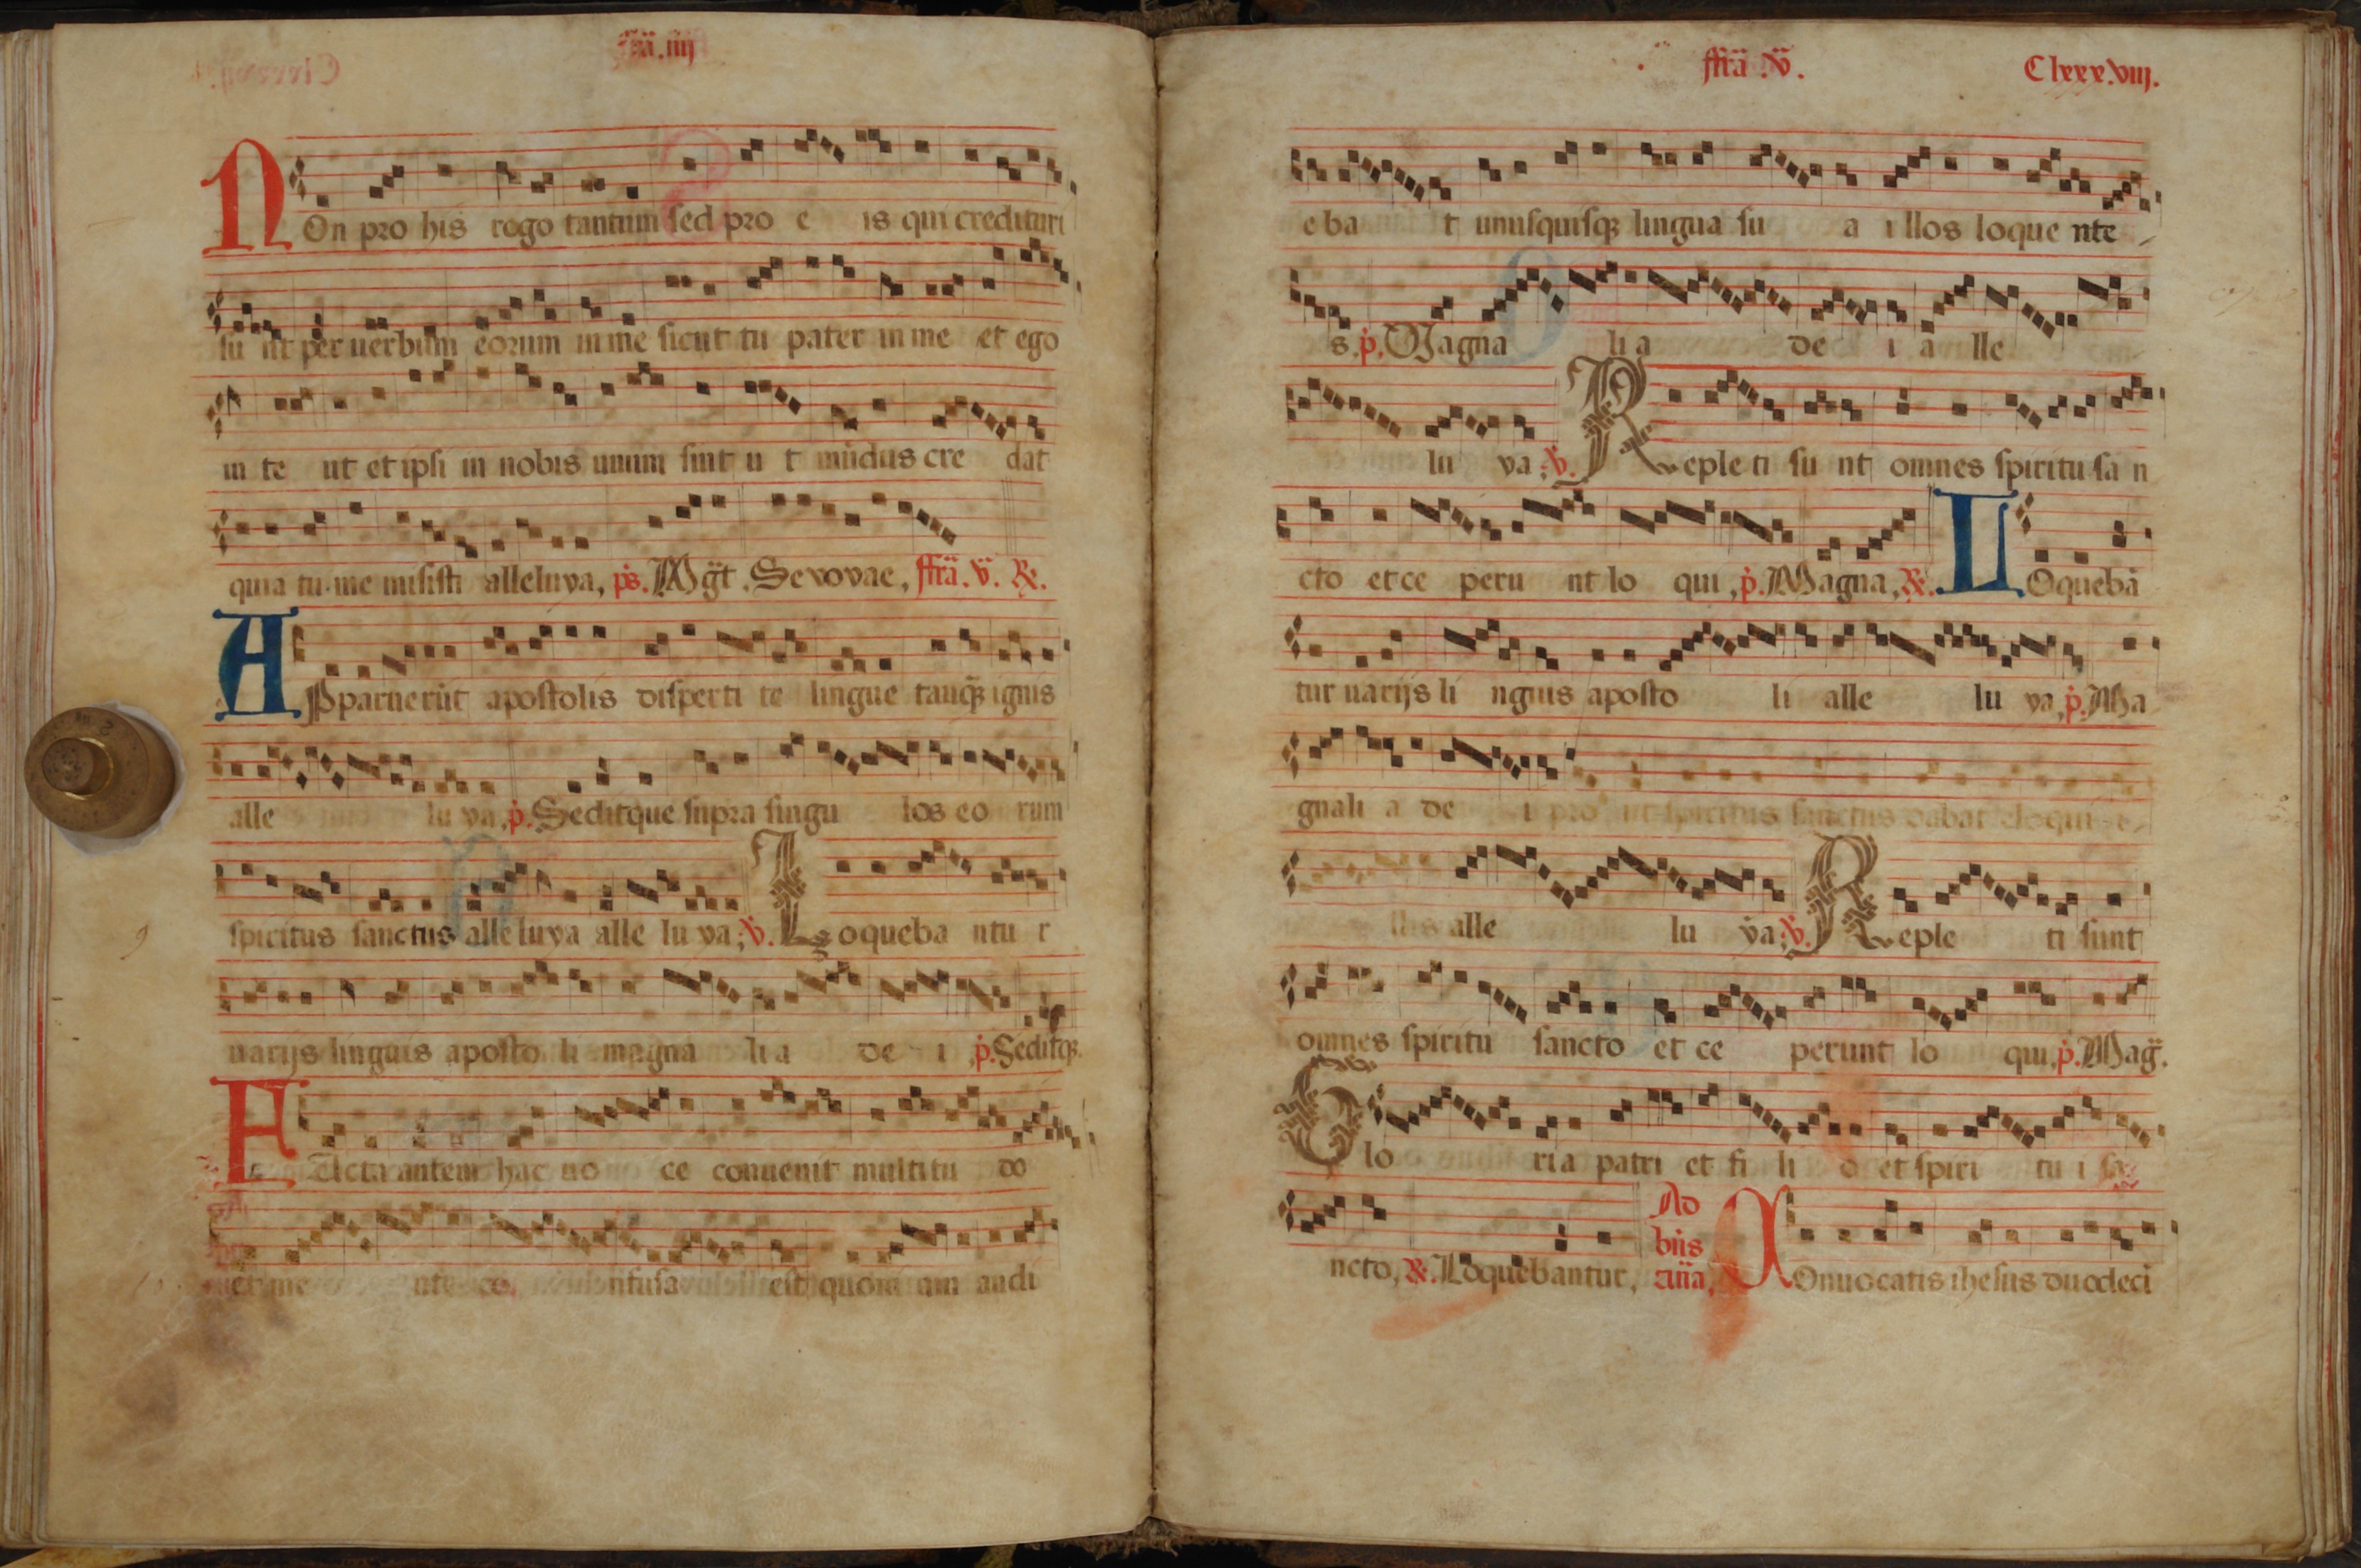 fr̃a. iiij
NOn pro his rogo tantum sed pro e is qui credituri
su nt per uerbum eorum in me sicut tu pater in me et ego
in te ut et ipsi in nobis unum sint u t mũdus cre dat
quia tu me misisti alleluya, ps. Mg̃t. Seuouae, ffr̃a. v̈. R.
APparuerũt apostolis disperti te lingue tanq̃ ignis
alle lu ya, p. Seditque supra singu los eo rum
spiritus sanctus alleluya alle lu ya; v. Loqueba ntu r
uarijs linguis aposto li magna li a de i p. Seditq̃
FActa autem hac uo ce conuenit multitu do
et me nte co nfusa est quoni am audi
ffr̃a. v̈. Clxxx.viij.
eba t unusquisq; lingua su a i llos loque nte
s. p. Magna li a de i a lle
lu ya; v. Reple ti su nt omnes spiritu sa n
cto et ce peru nt lo qui, p. Magna, R. LOquebã
tur uarijs li nguis aposto li alle lu ya, p. Ma
gnali a de i pro ut spiritus sanctus dabat eloqui
illis alle lu ya; v. Reple ti sunt
omnes spiritu sancto et ce perunt lo qui, p. Mag̃.
Glo ria patri et fi li o et spiri tu i sa
ncto, R. Loquebantur, Ad bñs cũia, COnuocatis ihesus duodeci